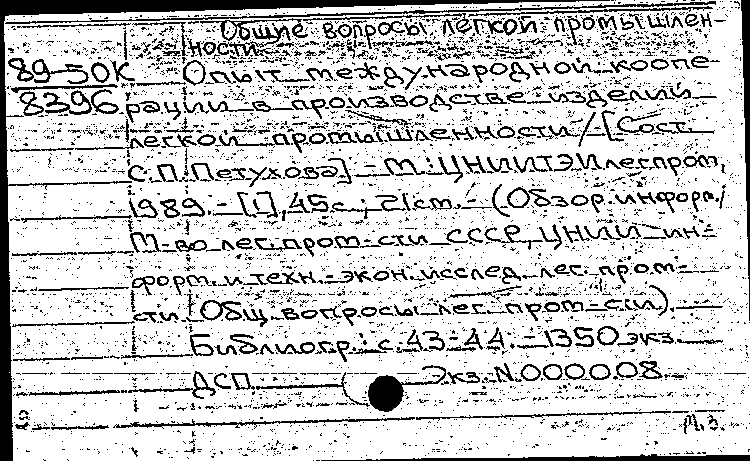 Общие вопросы легкой промышлен-
ности
89-50К Опыт международной коопе-
8396 рации в производстве изделий
легкой промышленности / [Сост.
С.П.Петухова] - М.: ЦНИИТЭИлегпром,
1989. - [1], 45с.; 21см. - (Обзор. информ. /
М-во лег. пром-сти СССР, ЦНИИ ин-
форм. и техн.-экон. исслед. лег. пром-
сти. Общ. вопросы лег. пром-сти).
Библиогр.: с. 43-44. - 1350 экз.
ДСП Экз. N.000008.
М.З.